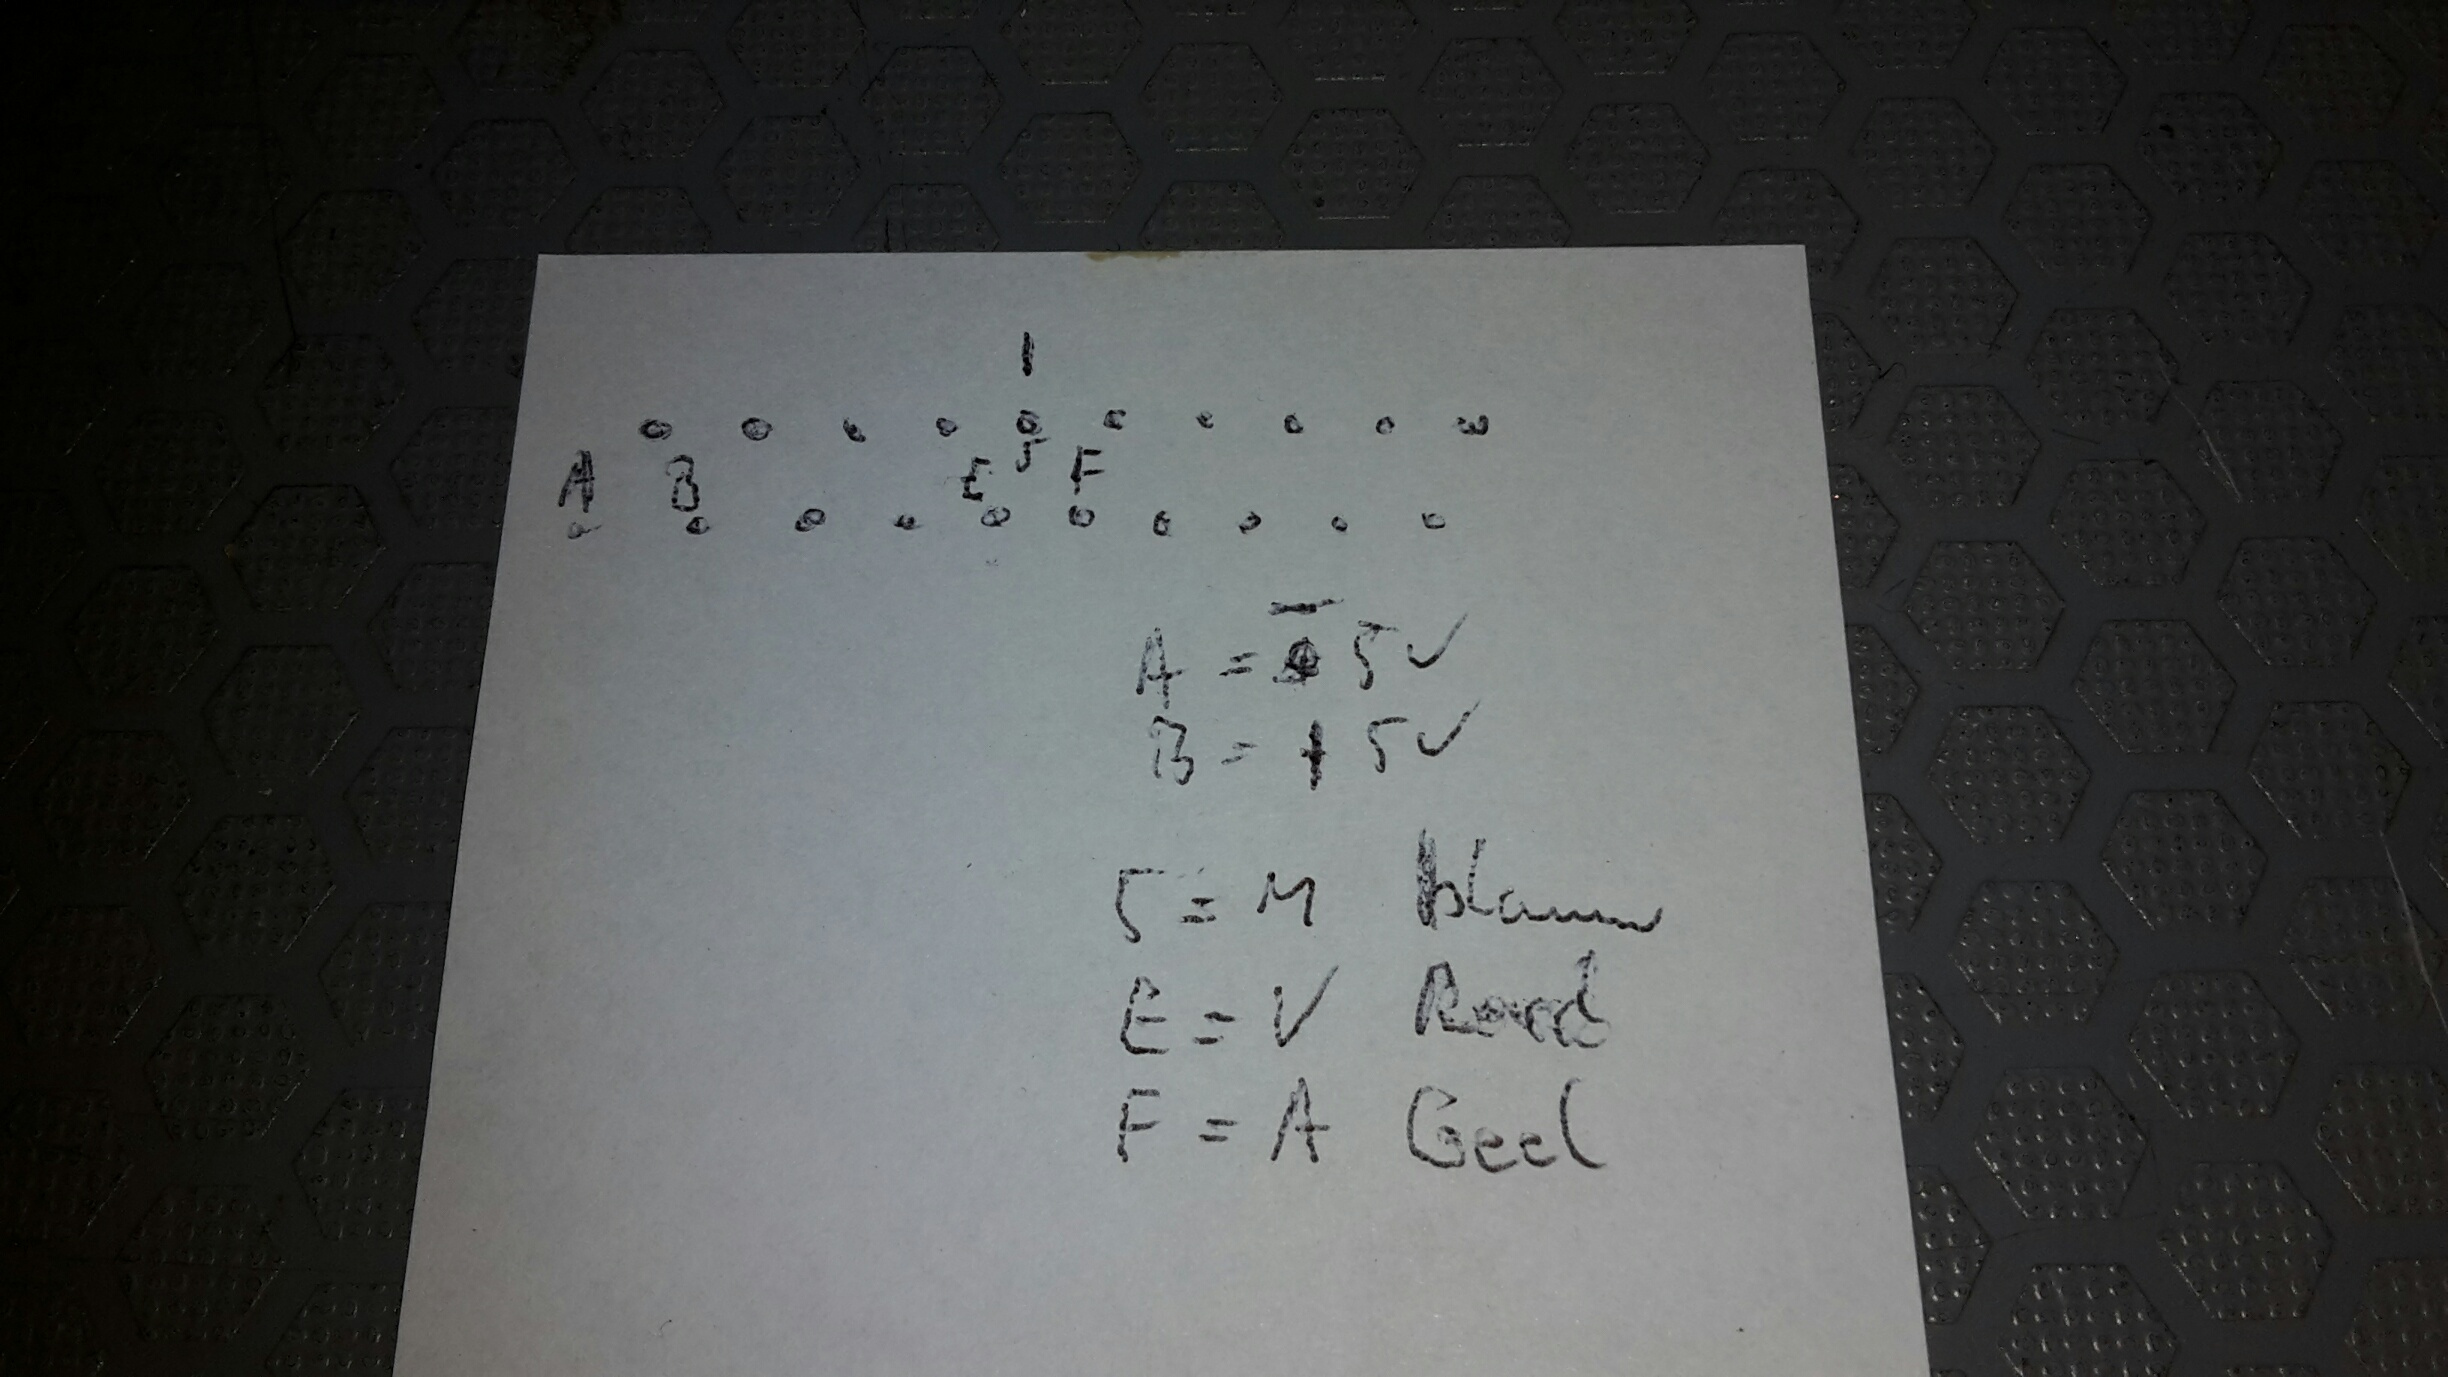 1
5
A B E F
A = - 5V
B = + 5V
5 = M blauw
E = V Rood
F = A Geel